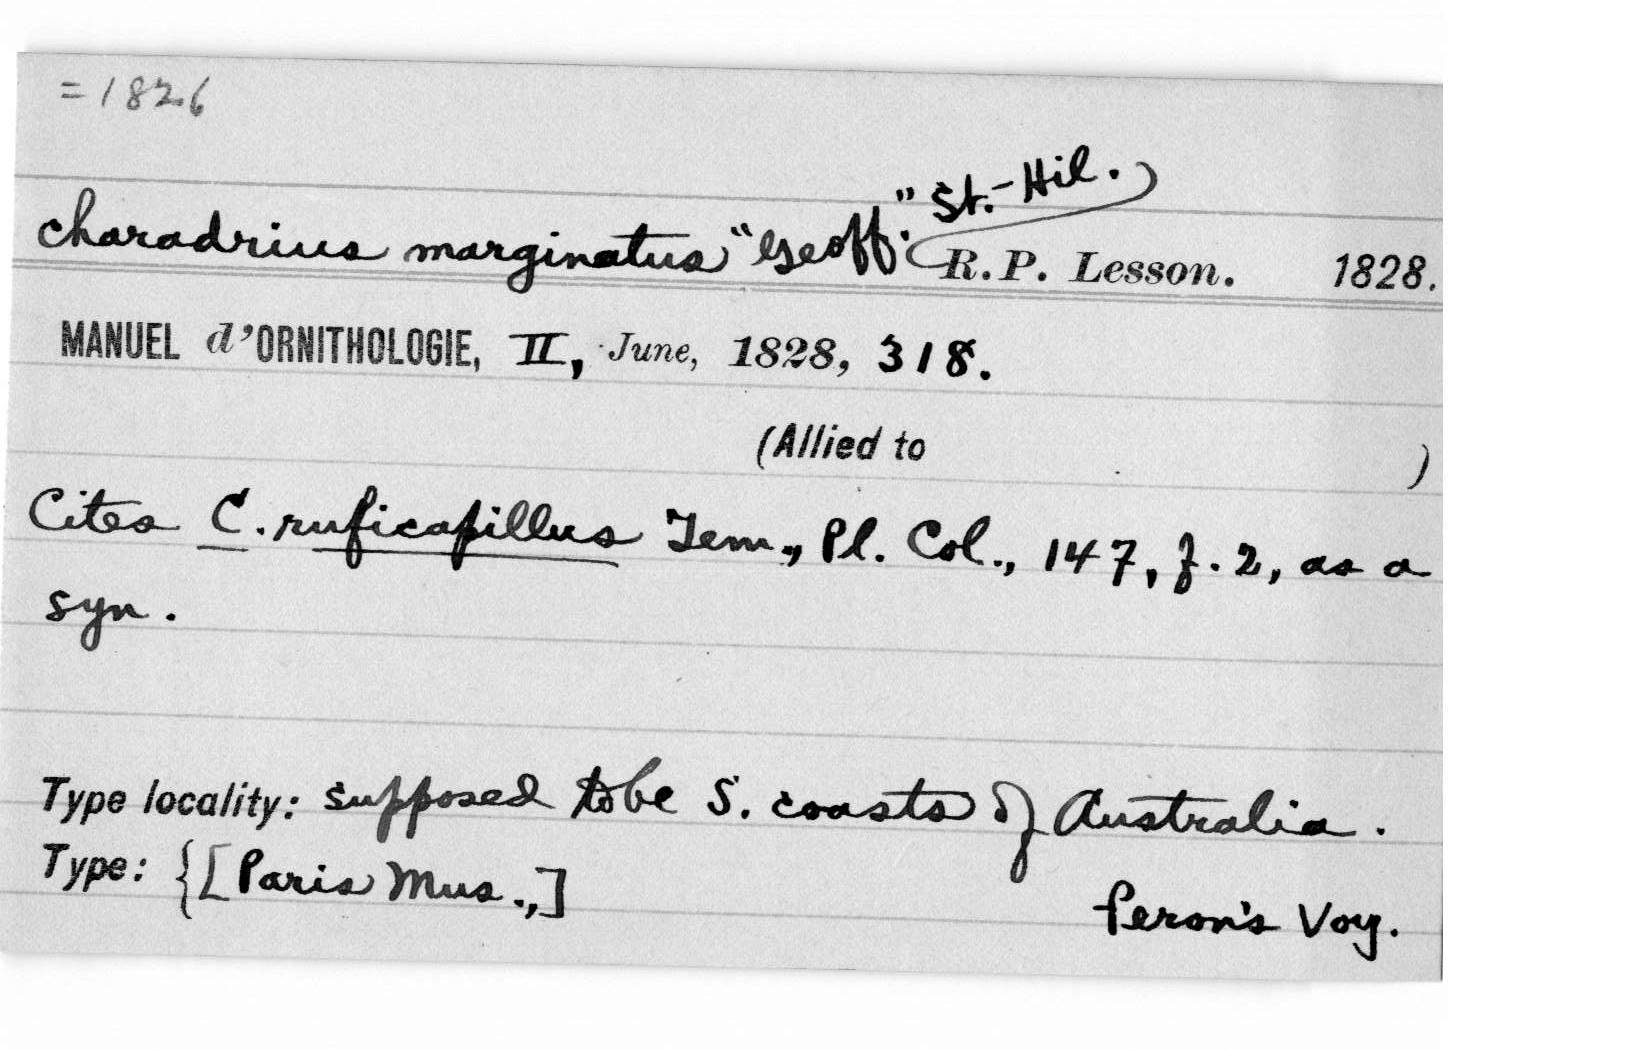 = 1826
Charadrius marginatus "Geoff." St.-Hil. R.P. Lesson. 1828.
MANUEL d'ORNITHOLOGIE, II, June, 1828, 318.
(Allied to )
Cites C. ruficapillus Tem., Pl. Col., 147, f. 2, as a
syn.
Type locality: supposed to be S. coasts of Australia.
Type: {[Paris Mus.,]
Peron's Voy.